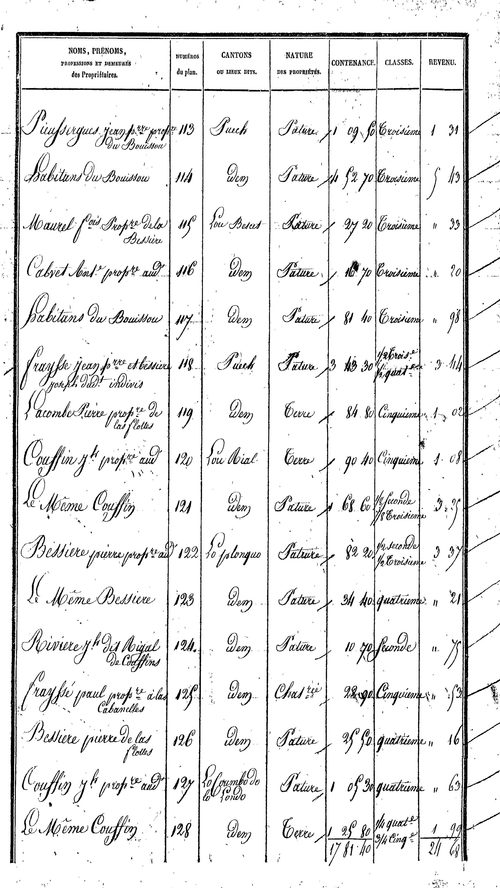 NOMS, PRÉNOMS, PROFESSIONS ET DEMEURES des Propriétaires. NUMÉROS du plan. CANTONS OU LIEUX DITS. NATURE DES PROPRIÉTÉS. CONTENANCE. CLASSES. REVENU.
Puechsergues jean p.re prop.re 113 Puech Pature 1 09 50 Troisieme 1 31
du Bouissou
habitans du Bouissou 114 idem Pature 4 52 70 Troisieme 5 43
Maurel f.ois Prop.re de la 115 Lou Bescut Pature 27 20 Troisieme " 33
Bessiere
Calvet Ant.e prop.re aud. 116 idem Pature 16 70 Troisieme " 20
habitans du Bouissou 117 idem Pature 81 40 Troisieme " 98
fraysse jean p.rre et bissiere 118 Puech Pature 3 43 30 1/2 Trois.e 1/2 quat.eme 3 44
joseph dud.t indivis
Lacombe Pierre prop.re de 119 idem Terre 84 80 Cinquieme 1 02
las flottes
Couffin j.h prop.re aud. 120 Lou Rial Terre 90 40 Cinquieme 1 08
Le Même Couffin 121 idem Pature 1 68 60 1/2 seconde 1/2 Troisieme 3 25
Bessiere pierre prop.re aud 122 Lo plonquo Pature 82 20 1/2 seconde 1/2 Troisieme 3 37
Le Même Bessiere 123 idem Pature 34 40 quatrieme " 21
Riviere j.h des Rigal 124 idem Pature 10 70 seconde " 75
de Couffins
fraysse paul prop.re à las 125 idem Chat.rie 28 90 Cinquieme " 53
Cabanelles
Bessiere pierre de las 126 idem Pature 25 50 quatrieme " 16
flottes
Couffin j.h prop.re aud 127 Lo Coumbo de lo Londo Pature 1 05 30 quatrieme " 63
Le Même Couffin 128 idem Terre 1 25 80 1/4 quat.e 3/4 Cinq.e 1 99
17 81 40 24 68